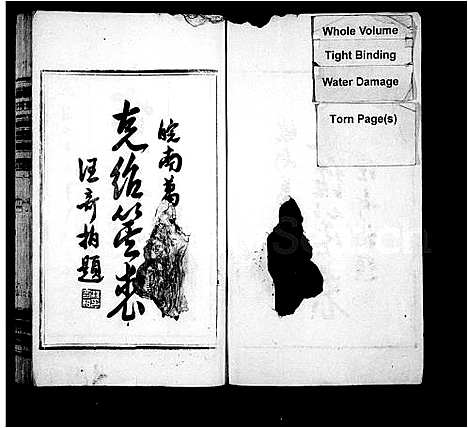 Whole Volume
Tight Binding
Water Damage
Torn Page(s)
皖南萬
克紹箕裘
汪奇拍題